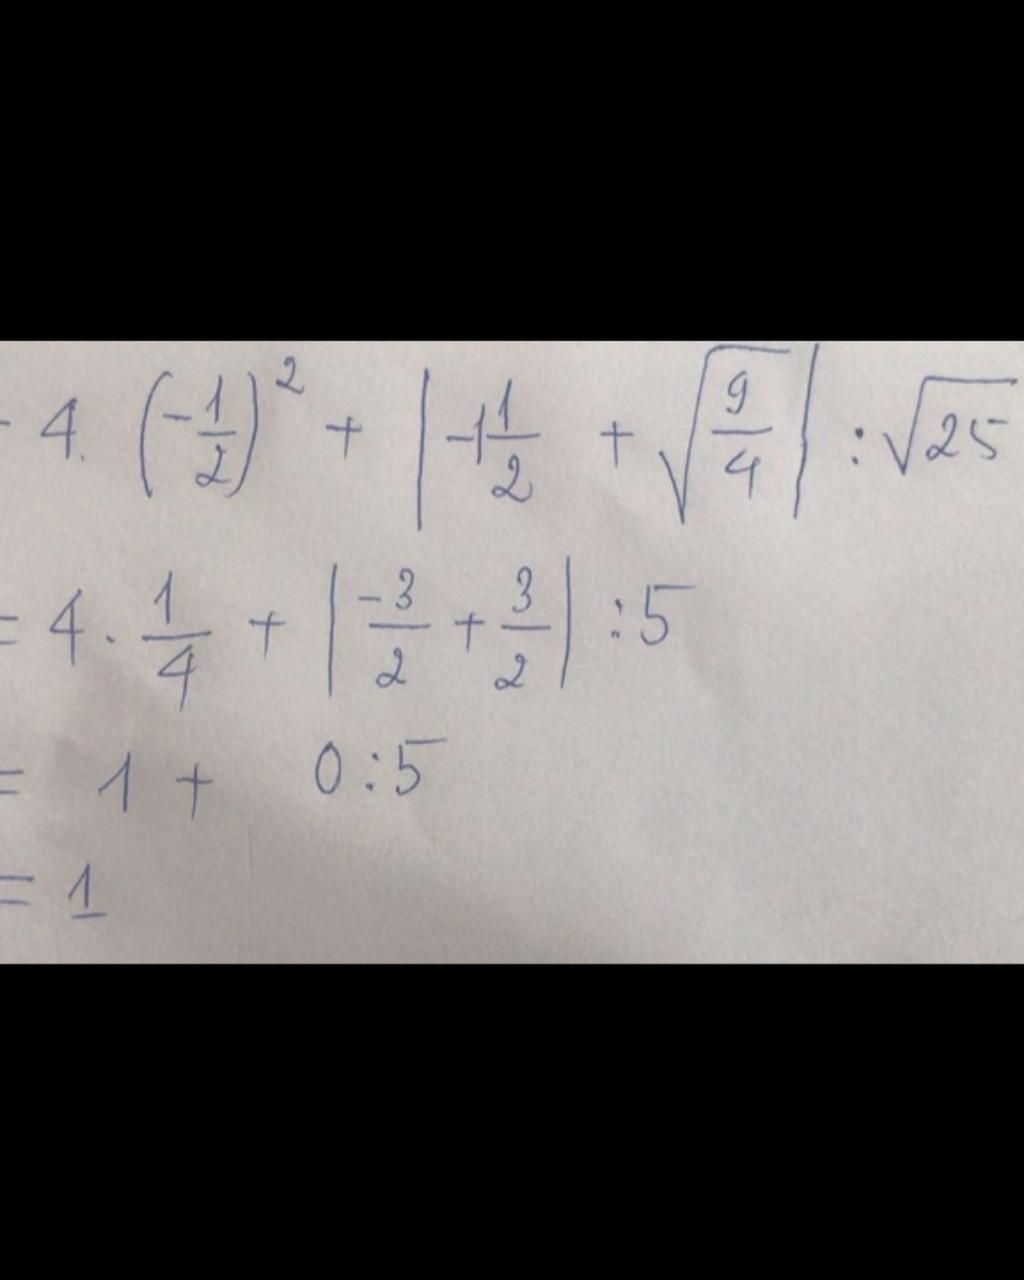 - 4. (-1/2)² + |-1 1/2 + √(9/4)| : √25
= 4 . 1/4 + |-3/2 + 3/2| : 5
= 1 + 0:5
= 1